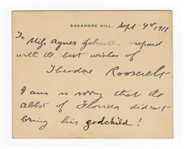 SAGAMORE HILL.
Sept 4th 1917
To Miss Agnes
with the best wishes of
Theodore Roosevelt
I am so sorry that the
abbot of Florida did not
bring his godchild!